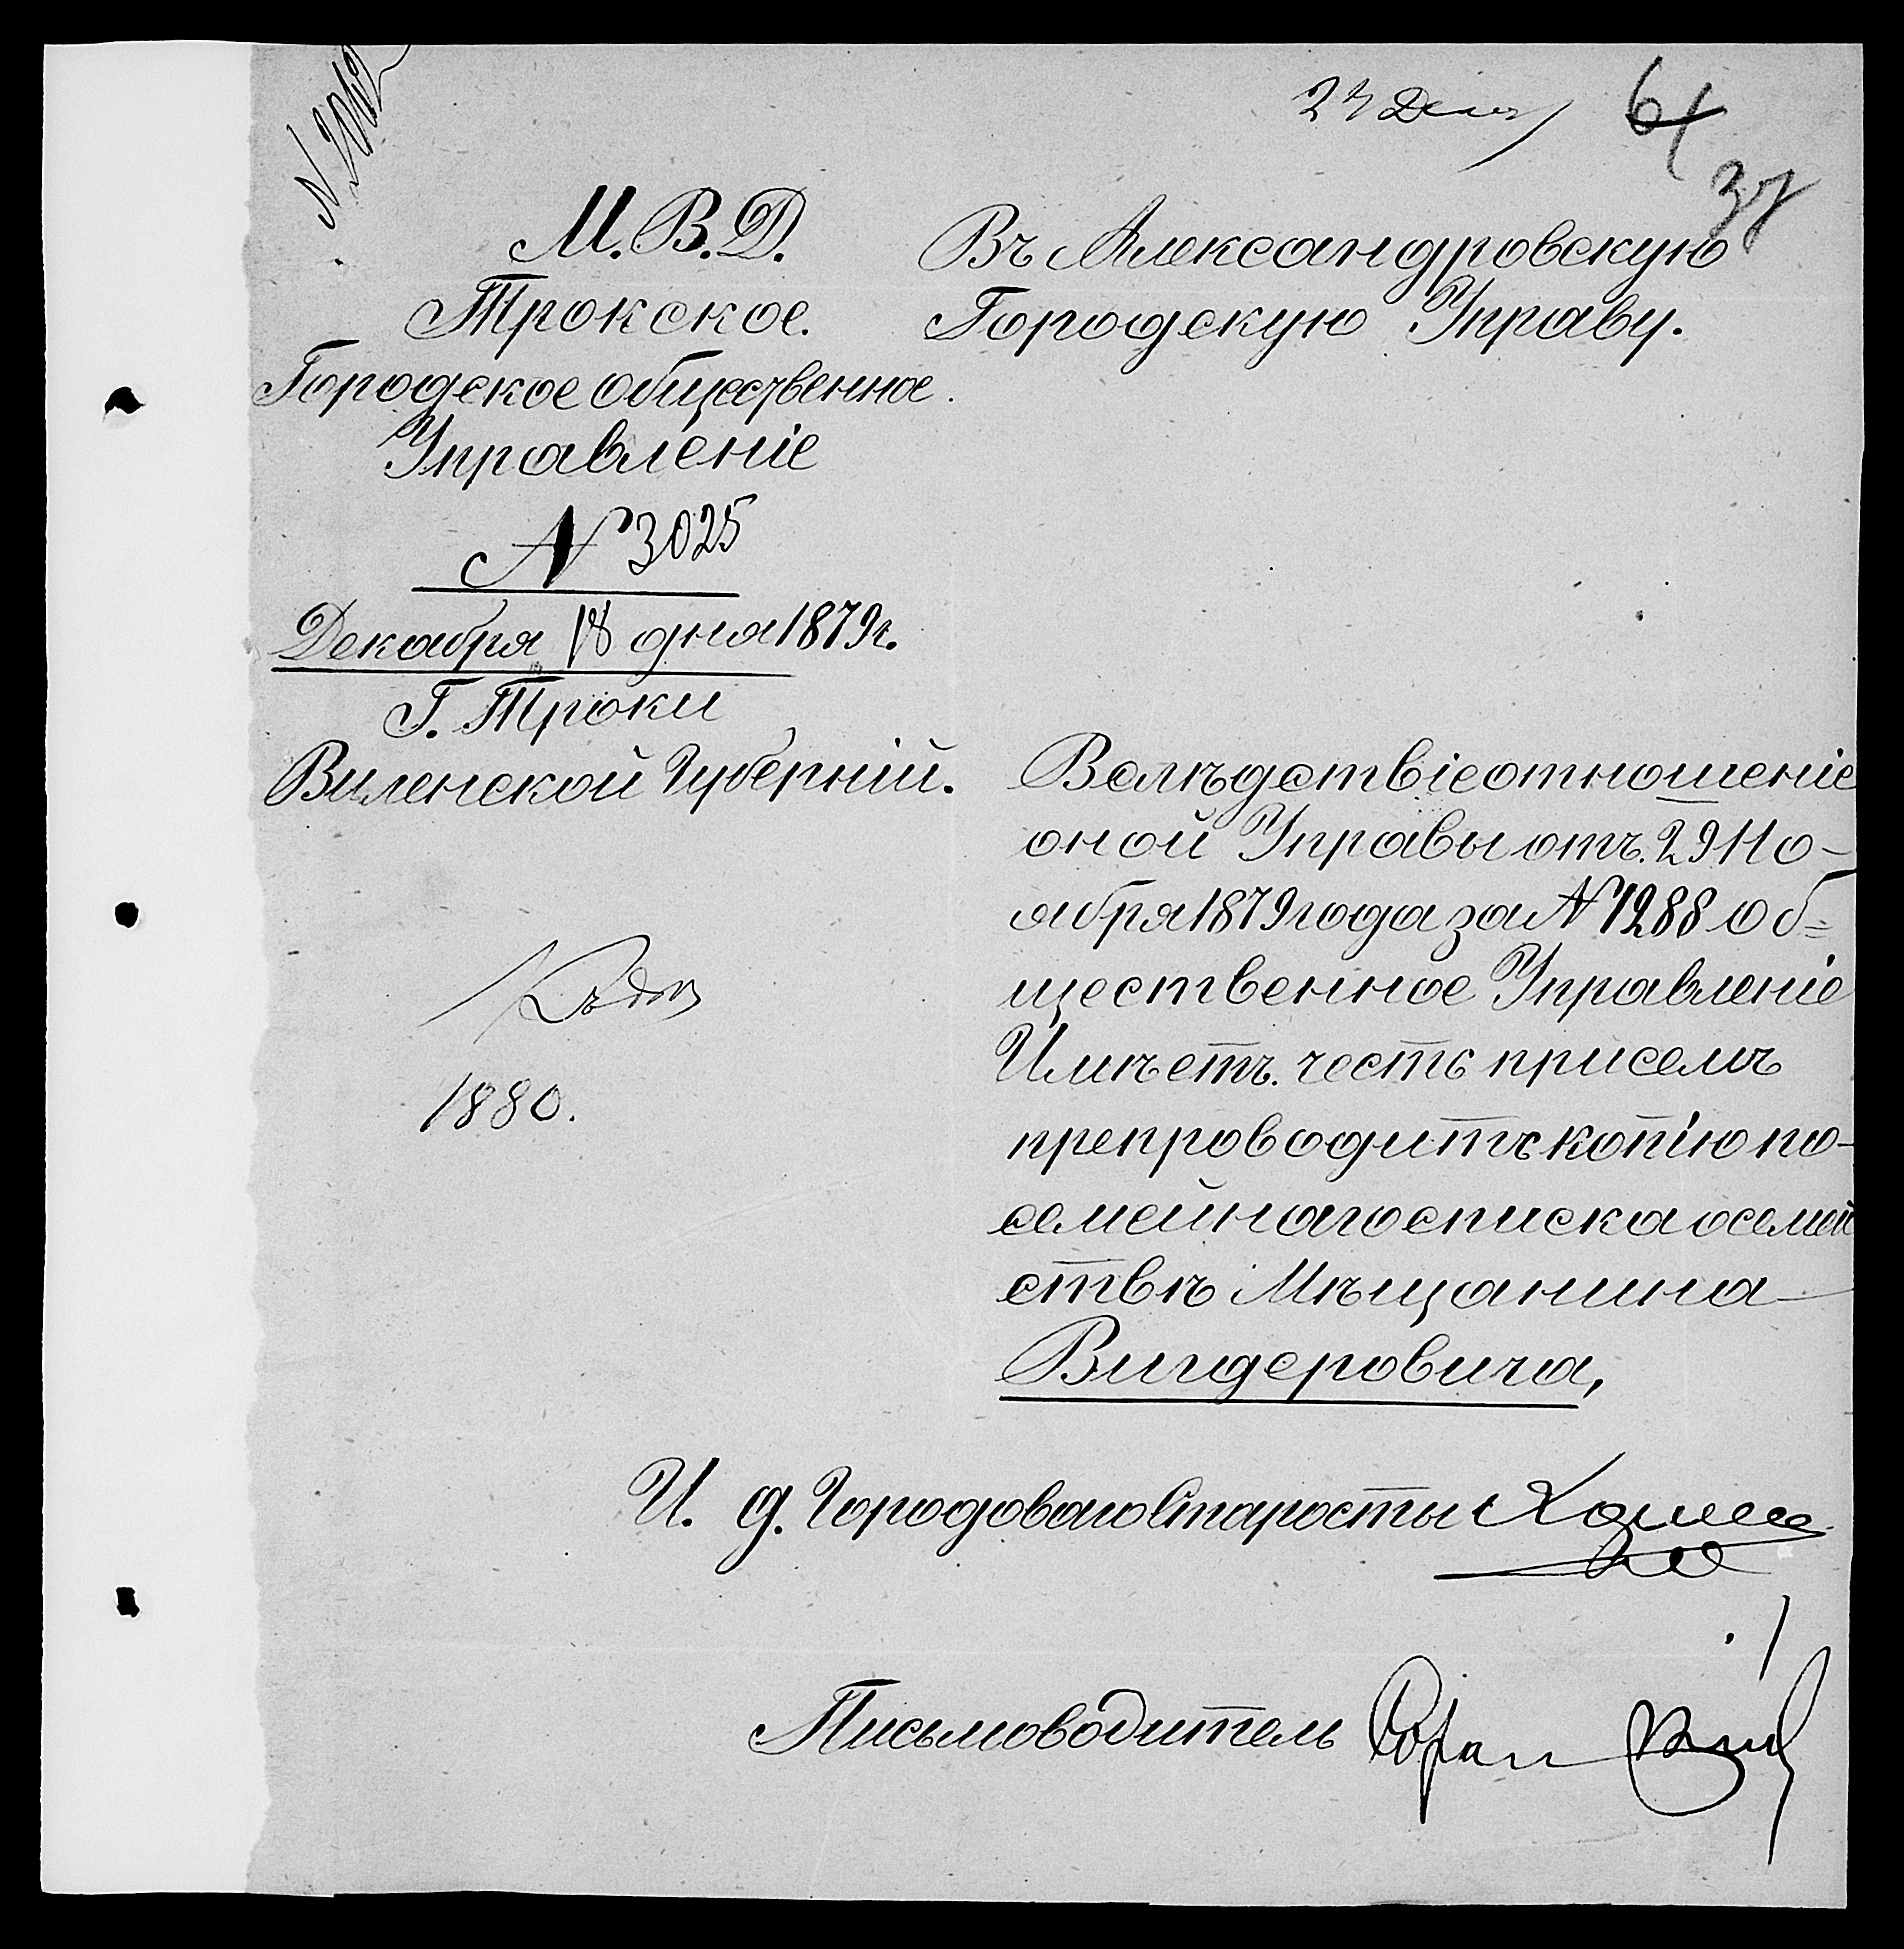 М. В. Д.
Трокское
Городское общественное
Управленіе
N 3025
Декабря 18 дня 1879 г.
Г. Троки
Виленской Губерніи.
1880.
64
37
Въ Александровскую
Городскую Управу.
Вслѣдствіе отношеніе
оной Управы отъ 29 Но-
ября 1879 года за N 1288 об=
щественное Управленіе
Имѣетъ честь присемъ
препроводить копію по-
семейнаго списка о семей
ствѣ Мѣщанина
Вигдеровича,
И. д. Городоваго Старосты
Письмоводитель